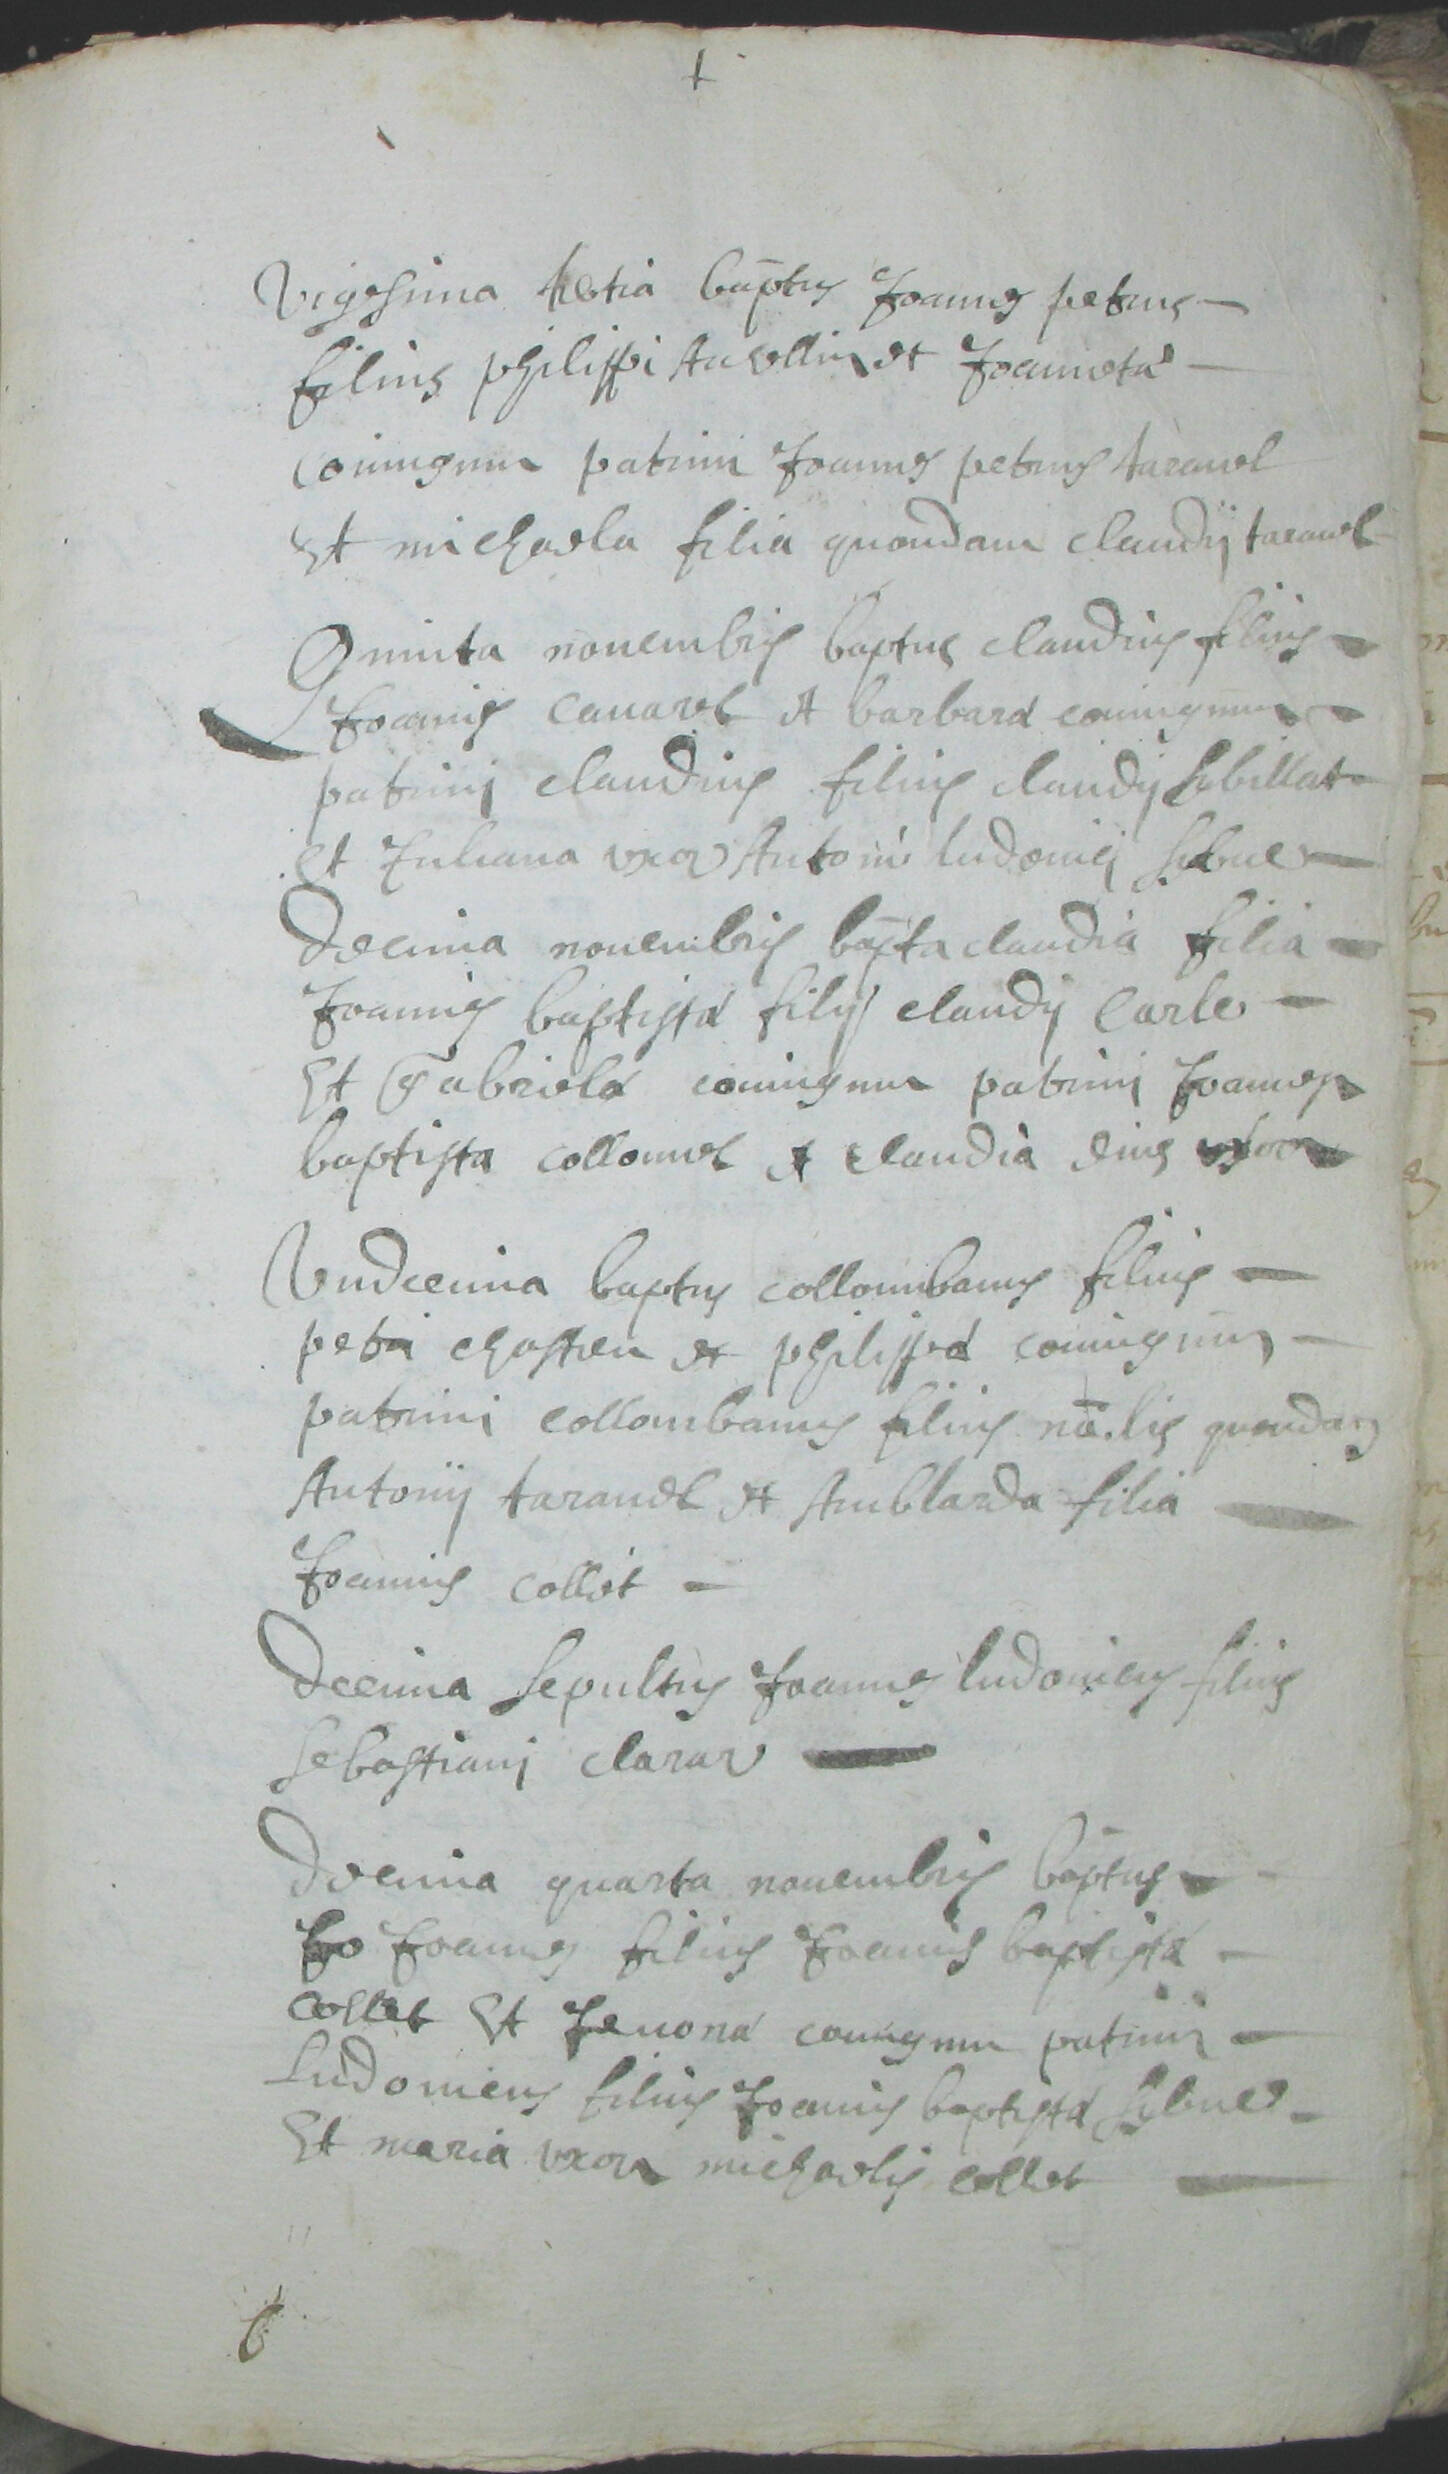 Vigesima tertia baptus Joannes petrus
filius philippi Auellin et Joannetæ
coniugum patrini Joannes petrus tarauel
Et michaela filia quondam claudij tarauel
Quinta nouembris baptus claudius filius
Joannis cauarel et barbaræ coniugum
patrinj claudius filius claudij
et Juliana vxor Antonii ludouici
Decima nouembris bapta claudia filia
Joannis baptistæ filij claudij Carle
Et Gabrielæ coniugum patrinj Joannes
baptista collomel et claudia eius vxor
Vndecima baptus collombanus filius
petri chastieu et philippæ coniugum
patrini collombanus filius nālis quondam
Antonij tarauel et Amblarda filia
Joannis collet
Decima Sepultus Joannes ludouicus filius
Sebastianj clarar
Decima quarta nouembris baptus
Jo Joannes filius Joannis baptistæ
collet Et Jeuonæ coniugum patrini
Ludouicus filius Joannis baptistæ
Et maria vxor michaelis collet